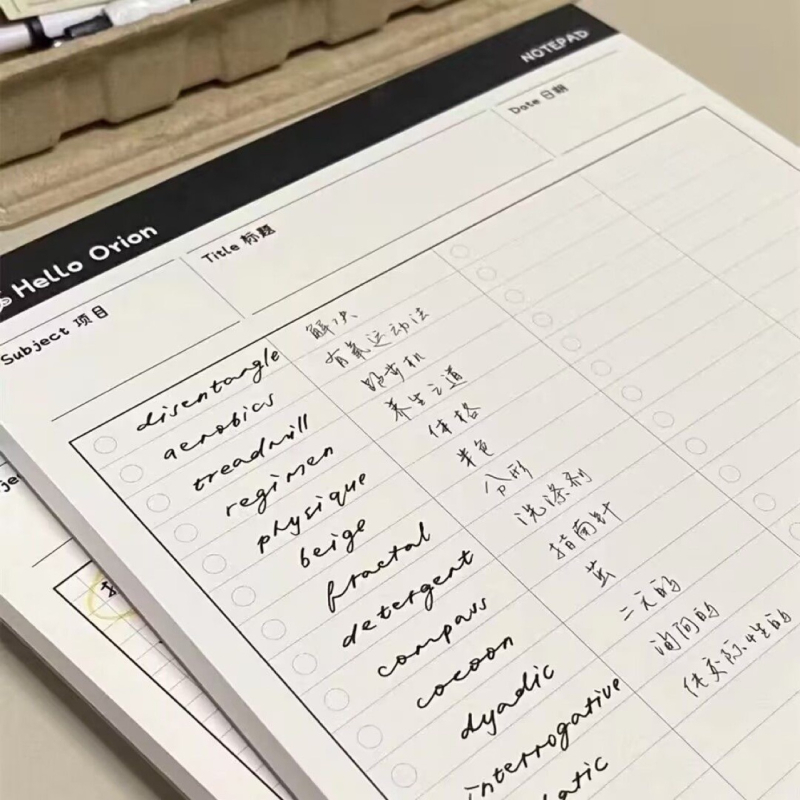 NOTEPAD
Hello Orion
Date 日期
Title 标题
Subject 项目
disentangle 解决
aerobics 有氧运动法
treadmill 跑步机
regimen 养生之道
physique 体格
beige 米色
fractal 分形
detergent 洗涤剂
compass 指南针
cocoon 茧
dyadic 二元的
interrogative 询问的
atic 交际性的